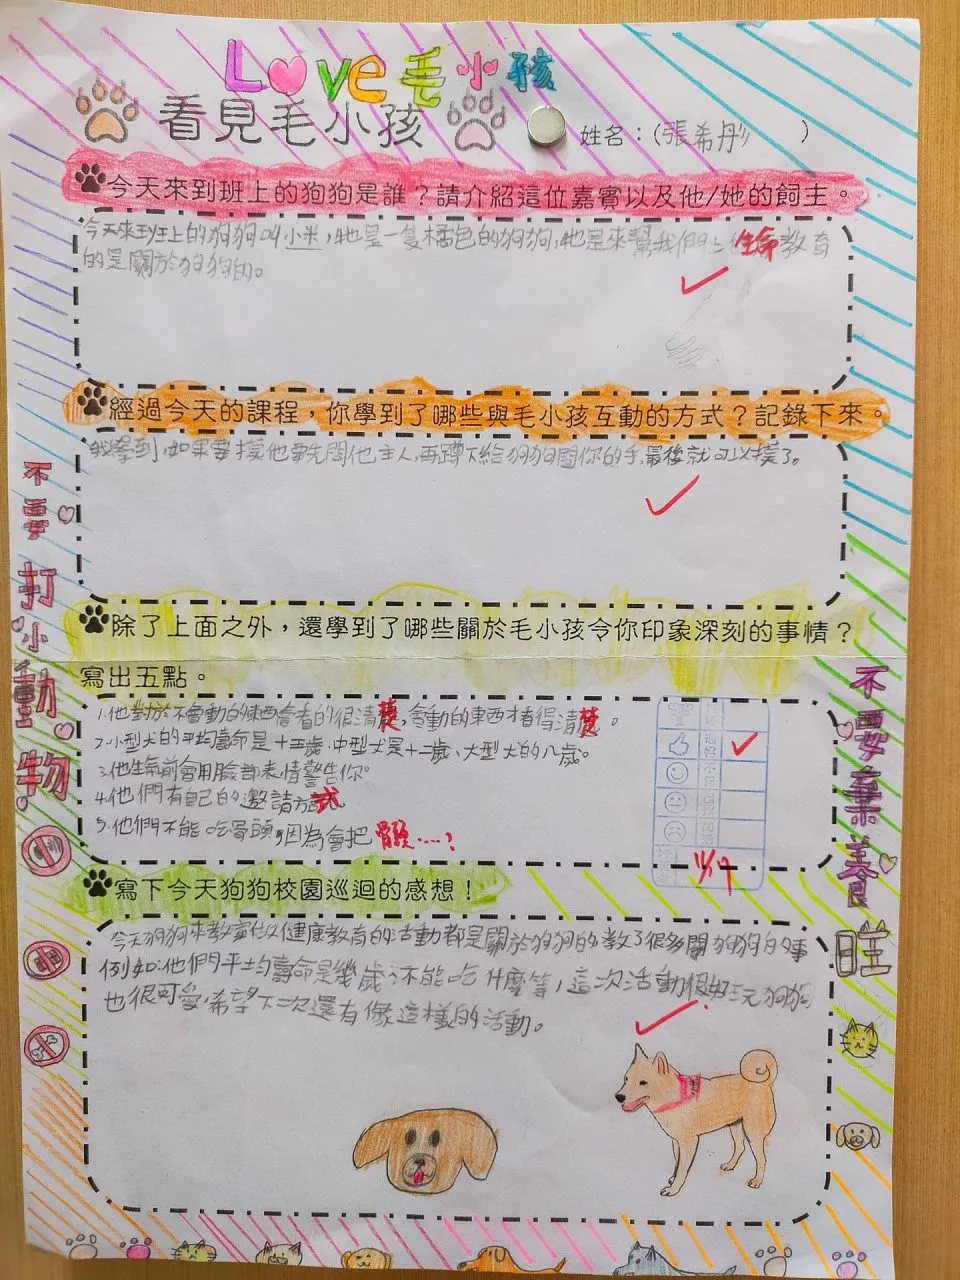 Love毛小孩
看見毛小孩
姓名：(張希彤 )
今天來到班上的狗狗是誰？請介紹這位嘉賓以及他/她的飼主。
今天來到班上的狗狗叫小米，牠是一隻橘色的狗狗，牠是來幫我們上生命教育
的是關於狗狗的。
經過今天的課程，你學到了哪些與毛小孩互動的方式？記錄下來。
我學到，如果要摸他要先問他主人，再蹲下給狗狗聞你的手，最後就可以摸了。
除了上面之外，還學到了哪些關於毛小孩令你印象深刻的事情？
寫出五點。
1.他對於不會動的東西會看的很清楚，會動的東西才看得清楚。
2.小型犬的平均壽命是十五歲、中型犬是十二歲、大型犬的八歲。
3.他生氣前會用臉部表情警告你。
4.他們有自己的邀請方式
5.他們不能吃骨頭，因為會把髒……？
11/17
寫下今天狗狗校園巡迴的感想！
今天狗狗來教室做健康教育的活動都是關於狗狗的，教了很多關狗狗的事
例如：他們平均壽命是幾歲、不能吃什麼等，這次活動很好玩狗狗
也很可愛，希望下次還有像這樣的活動。
不要打小動物。
不要棄養
旺